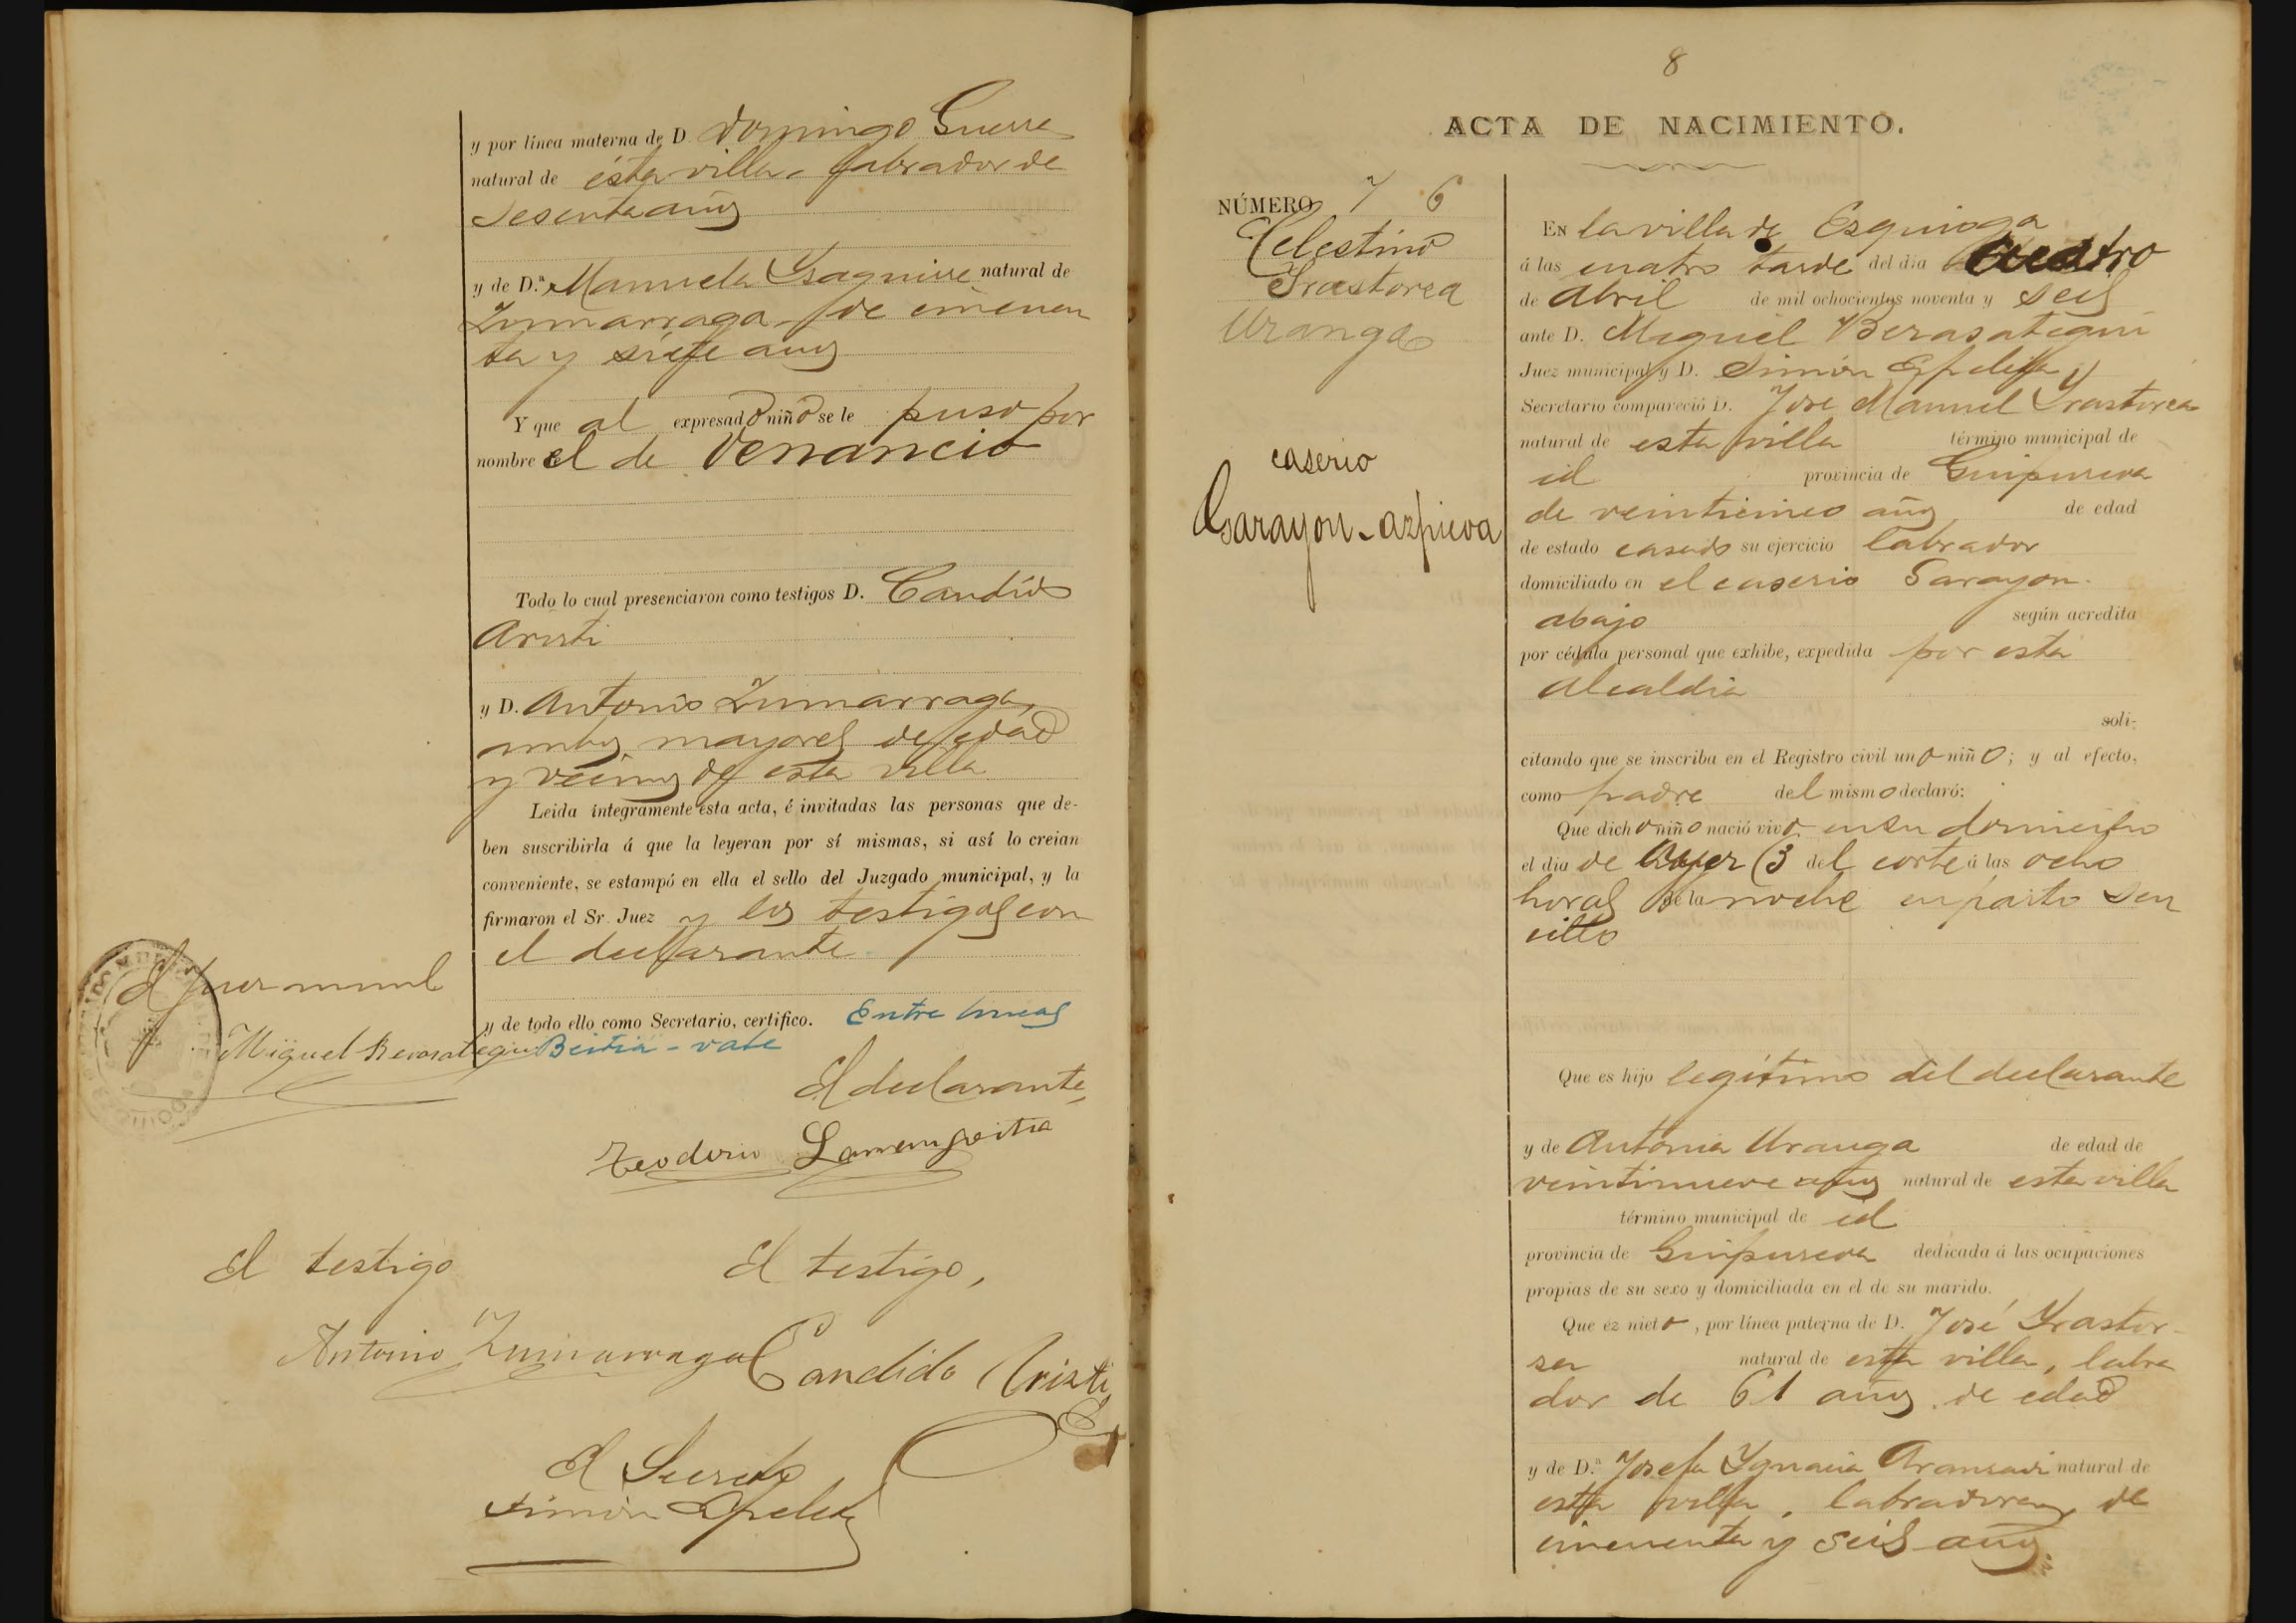 y por línea materna de D. Domingo Guerra
natural de ésta villa, labrador de
sesenta años
y de D.ª Manuela Ysaguirre natural de
Zumarraga, de cincuen
ta y siete años
Y que al expresado niño se le puso por
nombre el de Venancio
Todo lo cual presenciaron como testigos D. Candido
Aristi
y D. Antonio Zumarraga,
ambos mayores de edad
y vecinos de esta villa
Leida íntegramente esta acta, é invitadas las personas que de-
ben suscribirla á que la leyeran por sí mismas, si así lo creian
conveniente, se estampó en ella el sello del Juzgado municipal, y la
firmaron el Sr. Juez y los testigos con
el declarante
y de todo ello como Secretario, certifico. Entre lineas
Beitia - vale
El Juez munl
Miguel Berasategui
El declarante,
Teodoro
El testigo
El testigo,
Antonio Zumarraga
Candido Aristi
El Secreto
Simón Apeleta
8
ACTA DE NACIMIENTO.
NÚMERO 7 6
Celestino
Yrastorza
Uranga
caserio
Garayon-azpicoa
En la villa de Ezquioga
á las cuatro tarde del dia cuatro
de Abril de mil ochocientos noventa y seis
ante D. Miguel Berasategui
Juez municipal y D. Simón
Secretario compareció D. José Manuel Yrastorza
natural de esta villa término municipal de
id provincia de Guipuzcoa
de veinticinco años de edad
de estado casado su ejercicio labrador
domiciliado en el caserio Garayon-
abajo según acredita
por cédula personal que exhibe, expedida por esta
Alcaldia
soli-
citando que se inscriba en el Registro civil uno niño; y al efecto,
como padre del mismo declaró:
Que dicho niño nació vivo en su domicilio
el dia de Ayer (3 del corte á las ocho
horas de la noche en parto sen
cillo
Que es hijo legítimo del declarante
y de Antonia Uranga de edad de
veintinueve años natural de esta villa
término municipal de id
provincia de Guipuzcoa dedicada á las ocupaciones
propias de su sexo y domiciliada en el de su marido.
Que ez nieto, por línea paterna de D. José Yrastor-
za natural de esta villa, labra
dor de 61 años de edad
y de D.ª Josefa Ygnacia Aransadi natural de
esta villa, labradora, de
cincuenta y seis años.